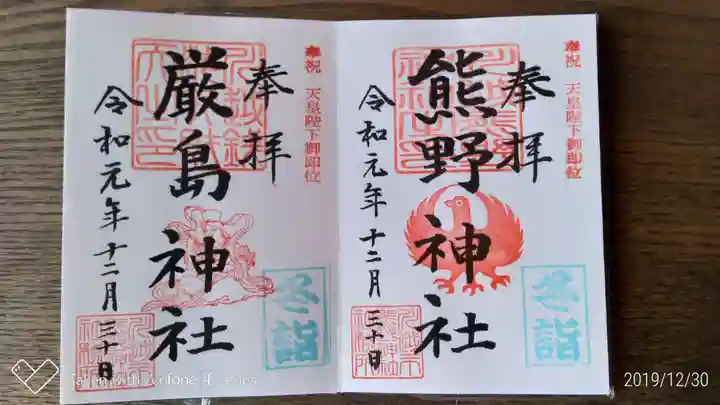 奉祝 天皇陛下御即位
奉拝
熊野神社
令和元年十二月三十日
冬詣
奉祝 天皇陛下御即位
奉拝
厳島神社
令和元年十二月三十日
冬詣
Taken with Zenfone 4 Series
2019/12/30